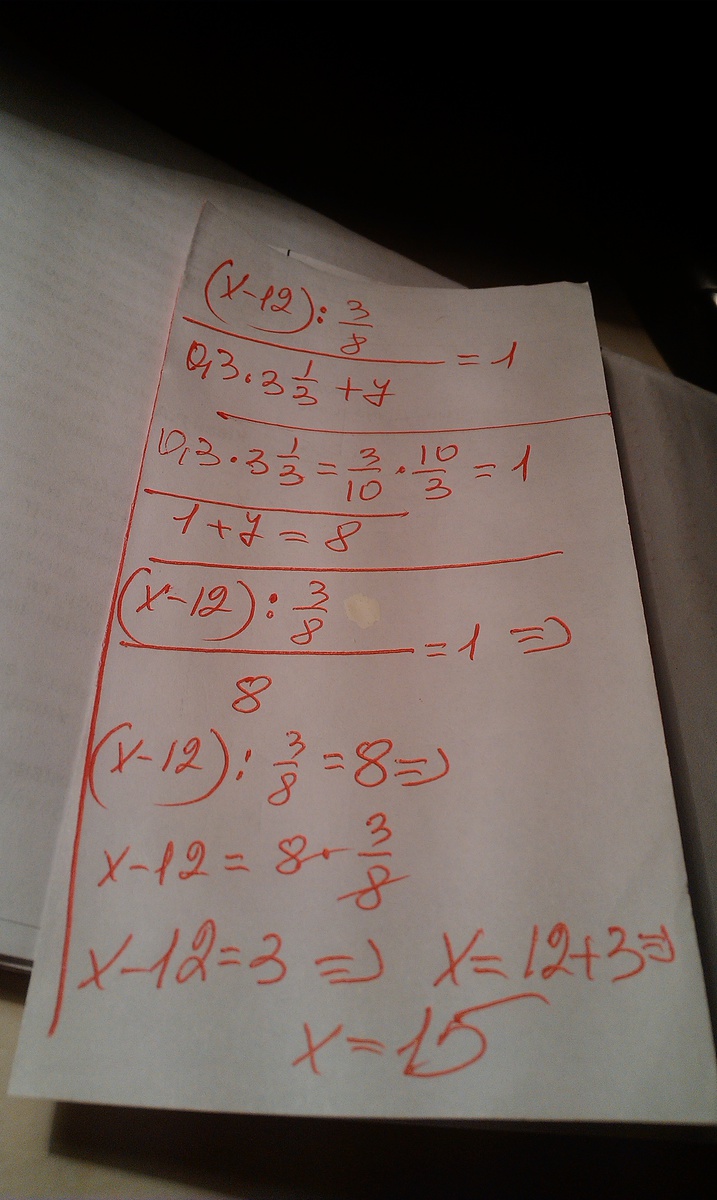 (x-12) : 3/8
0,3 · 3 1/3 + 7 = 1
0,3 · 3 1/3 = 3/10 · 10/3 = 1
1 + 7 = 8
(x-12) : 3/8
8 = 1 =>
(x-12) : 3/8 = 8 =>
x-12 = 8 · 3/8
x-12 = 3 => x = 12+3 =>
x = 15